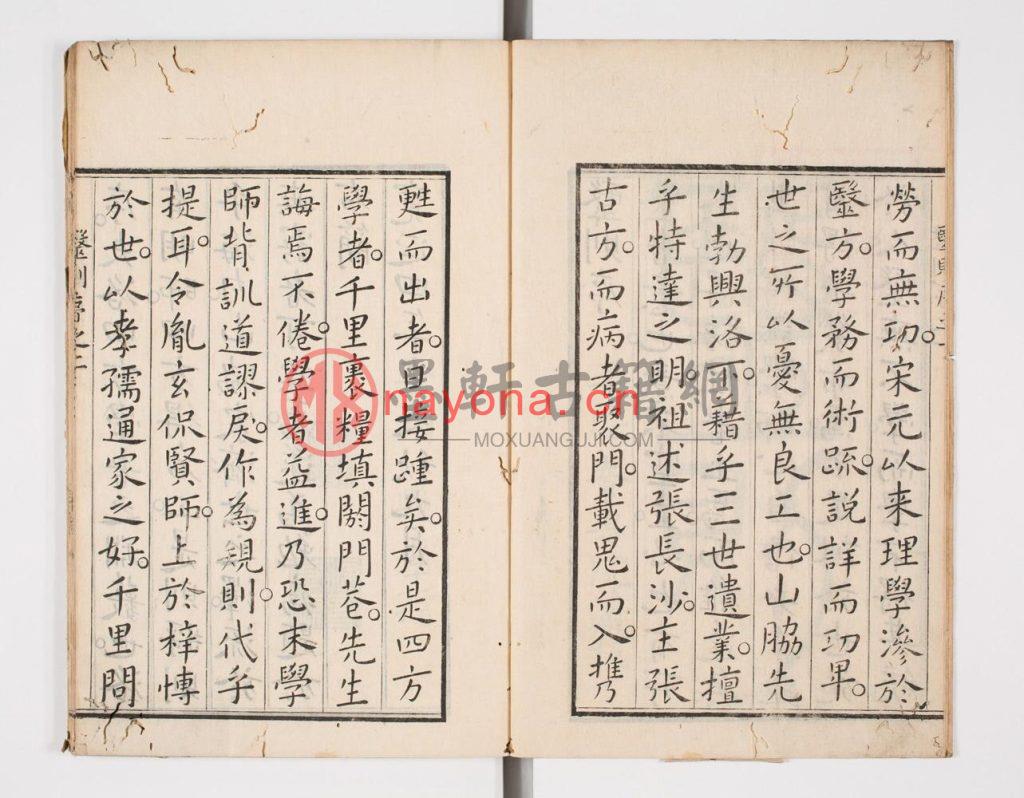 勞而無功。宋元以来理學滲於
毉方。學務而術踈。說詳而功卑。
世之所以憂無良工也。山脇先
生勃興洛下。藉乎三世遺業。擅
乎特達之明。祖述張長沙。主張
古方。而病者聚門。載鬼而入。攜
甦而出者。日接踵矣。於是四方
學者。千里裹糧填閼門巷。先生
誨焉不倦。學者益進。乃恐末學
師背訓道謬戾。作為規則。代乎
提耳。令胤玄侃賢師。上於梓愽
於世。以孝孺通家之好。千里問
墨軒古籍網
MOXUANGUJI.COM
nayona.cn